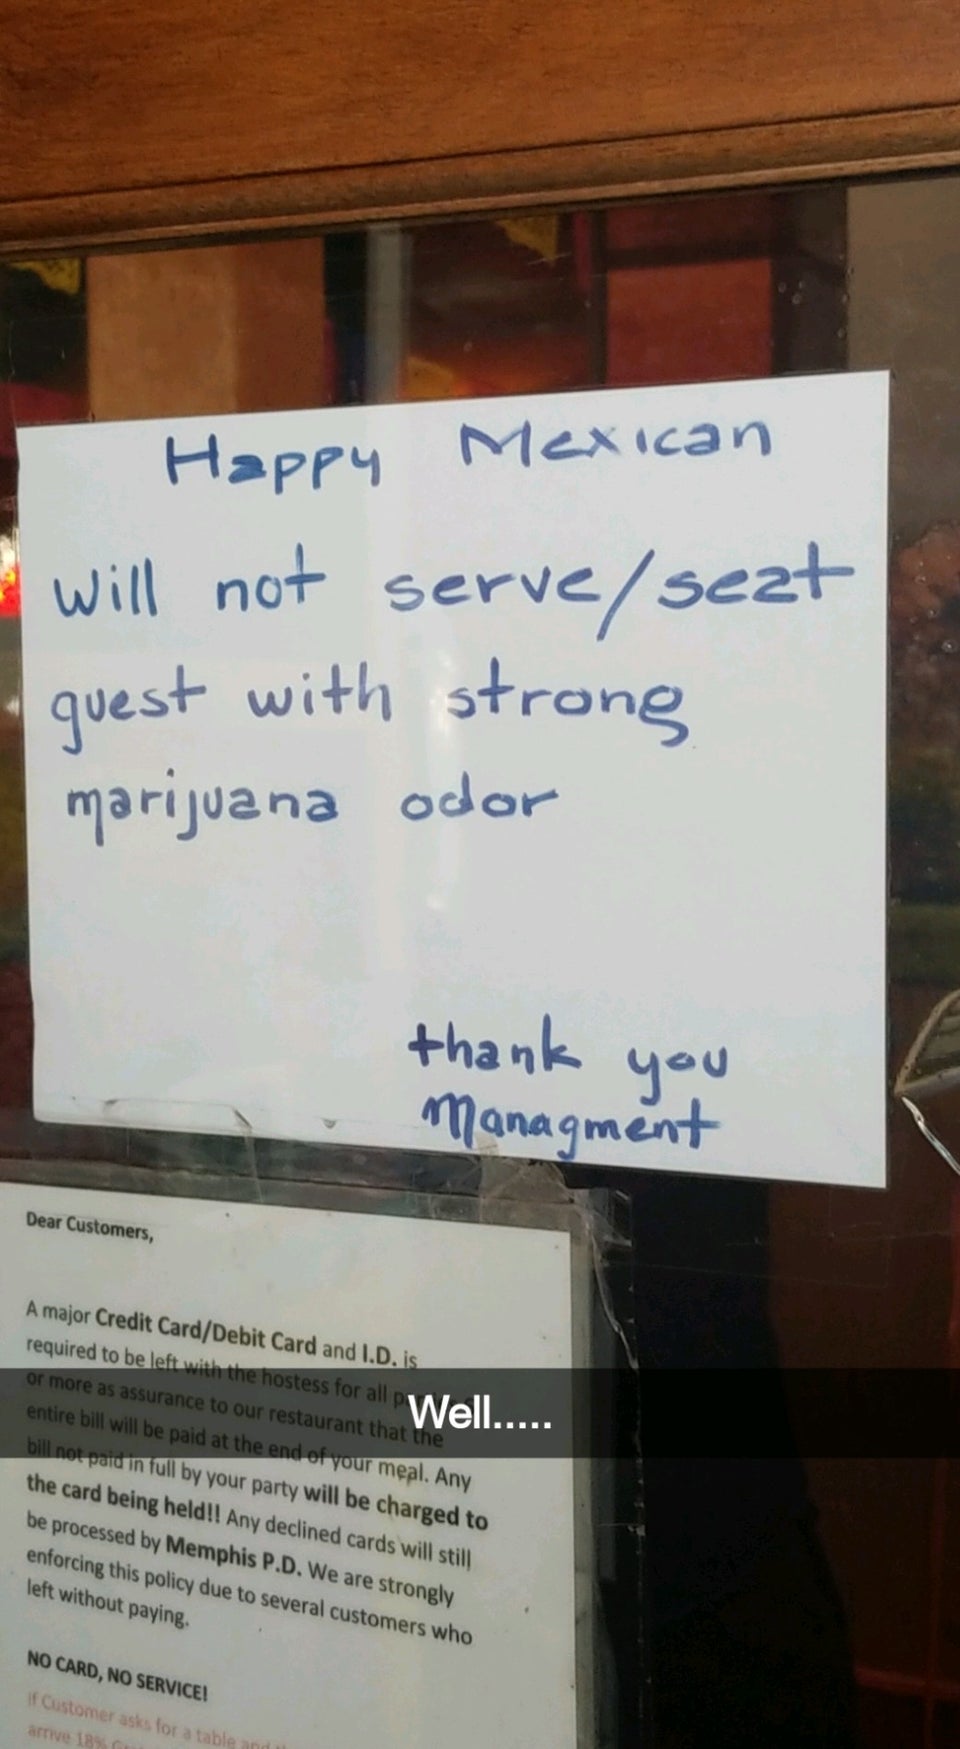 Happy Mexican
will not serve/seat
guest with strong
marijuana odor
thank you
Managment
Dear Customers,
A major Credit Card/Debit Card and I.D. is
required to be left with the hostess for all
or more as assurance to our restaurant that the
Well.....
entire bill will be paid at the end of your meal. Any
bill not paid in full by your party will be charged to
the card being held!! Any declined cards will still
be processed by Memphis P.D. We are strongly
enforcing this policy due to several customers who
left without paying.
NO CARD, NO SERVICE!
if Customer asks for a table and
arrive 18%